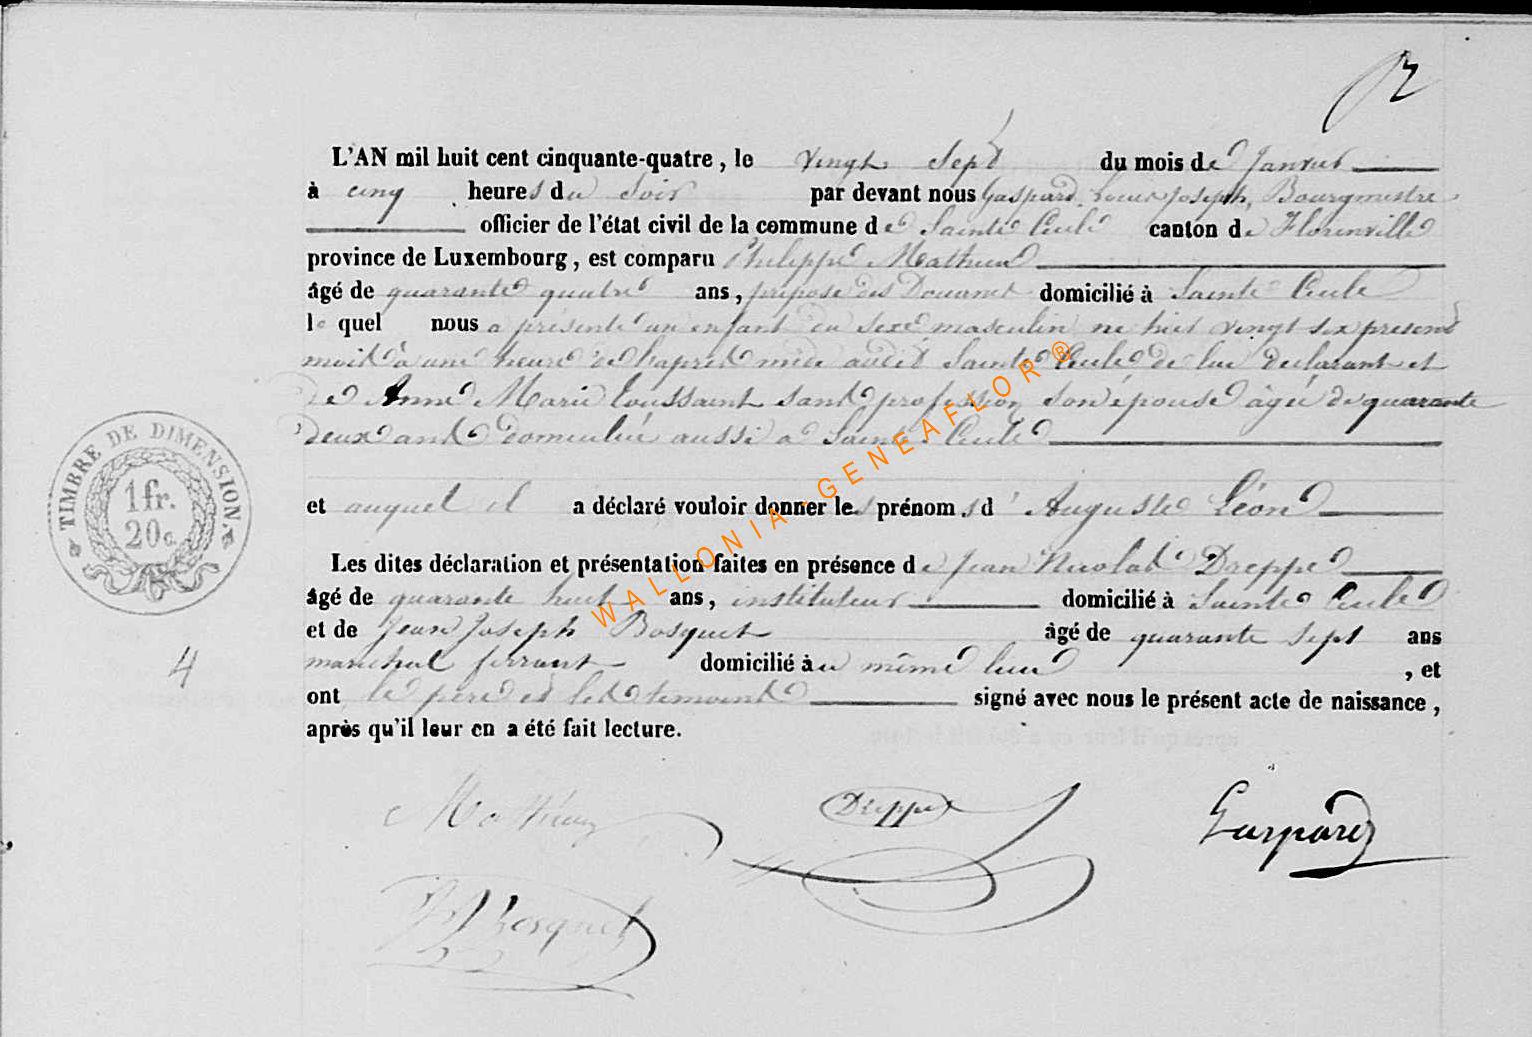 L'AN mil huit cent cinquante-quatre, le vingt Sept du mois de Janvier
à cinq heures du Soir par devant nous Gaspard Louis Joseph, Bourgmestre
officier de l'état civil de la commune de Sainte Cécile canton de Florenville
province de Luxembourg, est comparu Philippe Mathieu
âgé de quarante quatre ans, préposé des Douanes domicilié à Sainte Cécile
lequel nous a présenté un enfant du sexe masculin né hier vingt six présent
mois à une heure de l'après midi audit Sainte Cécile de lui déclarant et
de Anne Marie Toussaint sans profession son épouse âgée de quarante
deux ans domiciliée aussi à Sainte Cécile
et auquel il a déclaré vouloir donner les prénoms d' Auguste Léon
Les dites déclaration et présentation faites en présence de Jean Nicolas Dreppe
âgé de quarante huit ans, instituteur domicilié à Sainte Cécile
et de Jean Joseph Bosquet âgé de quarante sept ans
maréchal ferrant domicilié au même lieu, et
ont le père et les témoins signé avec nous le présent acte de naissance,
après qu'il leur en a été fait lecture.
TIMBRE DE DIMENSION.
1 fr.
20 c.
4
Mathieu Dreppe Gaspard
JJ Bosquet
WALLONIA-GENEAFLOR®